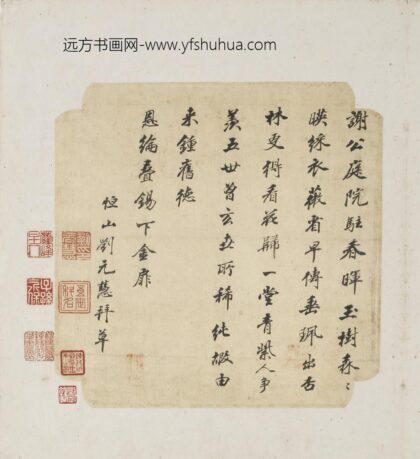 远方书画网-www.yfshuhua.com
謝公庭院駐春暉玉樹森〻
暎綵衣薇省早傳垂珮出杏
林更得看花歸一堂青紫人爭
羨五世曾玄世所稀純嘏由
来鍾舊德
恩綸疊錫下金扉
恒山劉元慧拜草